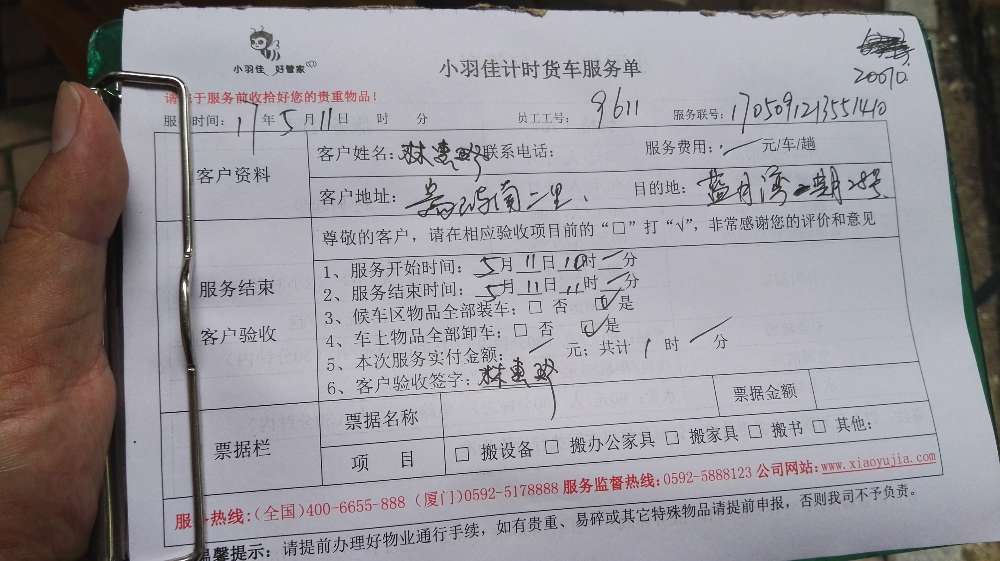 小羽佳 好管家
小羽佳计时货车服务单
20070
请 于服务前收拾好您的贵重物品！
服 时间：17年5月11日 时 分 员工工号：9611 服务联号：1705091213551410
客户资料
客户姓名：林惠 联系电话： 服务费用： 元/车/趟
客户地址： 南二里 目的地：蓝月湾二期28号
尊敬的客户，请在相应验收项目前的“□”打“√”，非常感谢您的评价和意见
服务结束
客户验收
1、服务开始时间：5月11日10时 分
2、服务结束时间：5月11日11时 分
3、候车区物品全部装车：□ 否 ☑ 是
4、车上物品全部卸车：□ 否 ☑ 是
5、本次服务实付金额： 元；共计 1 时 分
6、客户验收签字：林惠
票据栏
票据名称 票据金额
项 目 □ 搬设备 □ 搬办公家具 □ 搬家具 □ 搬书 □ 其他：
服务热线：(全国)400-6655-888 (厦门)0592-5178888 服务监督热线：0592-5888123 公司网站：www.xiaoyujia.com
温馨提示：请提前办理好物业通行手续，如有贵重、易碎或其它特殊物品请提前申报，否则我司不予负责。